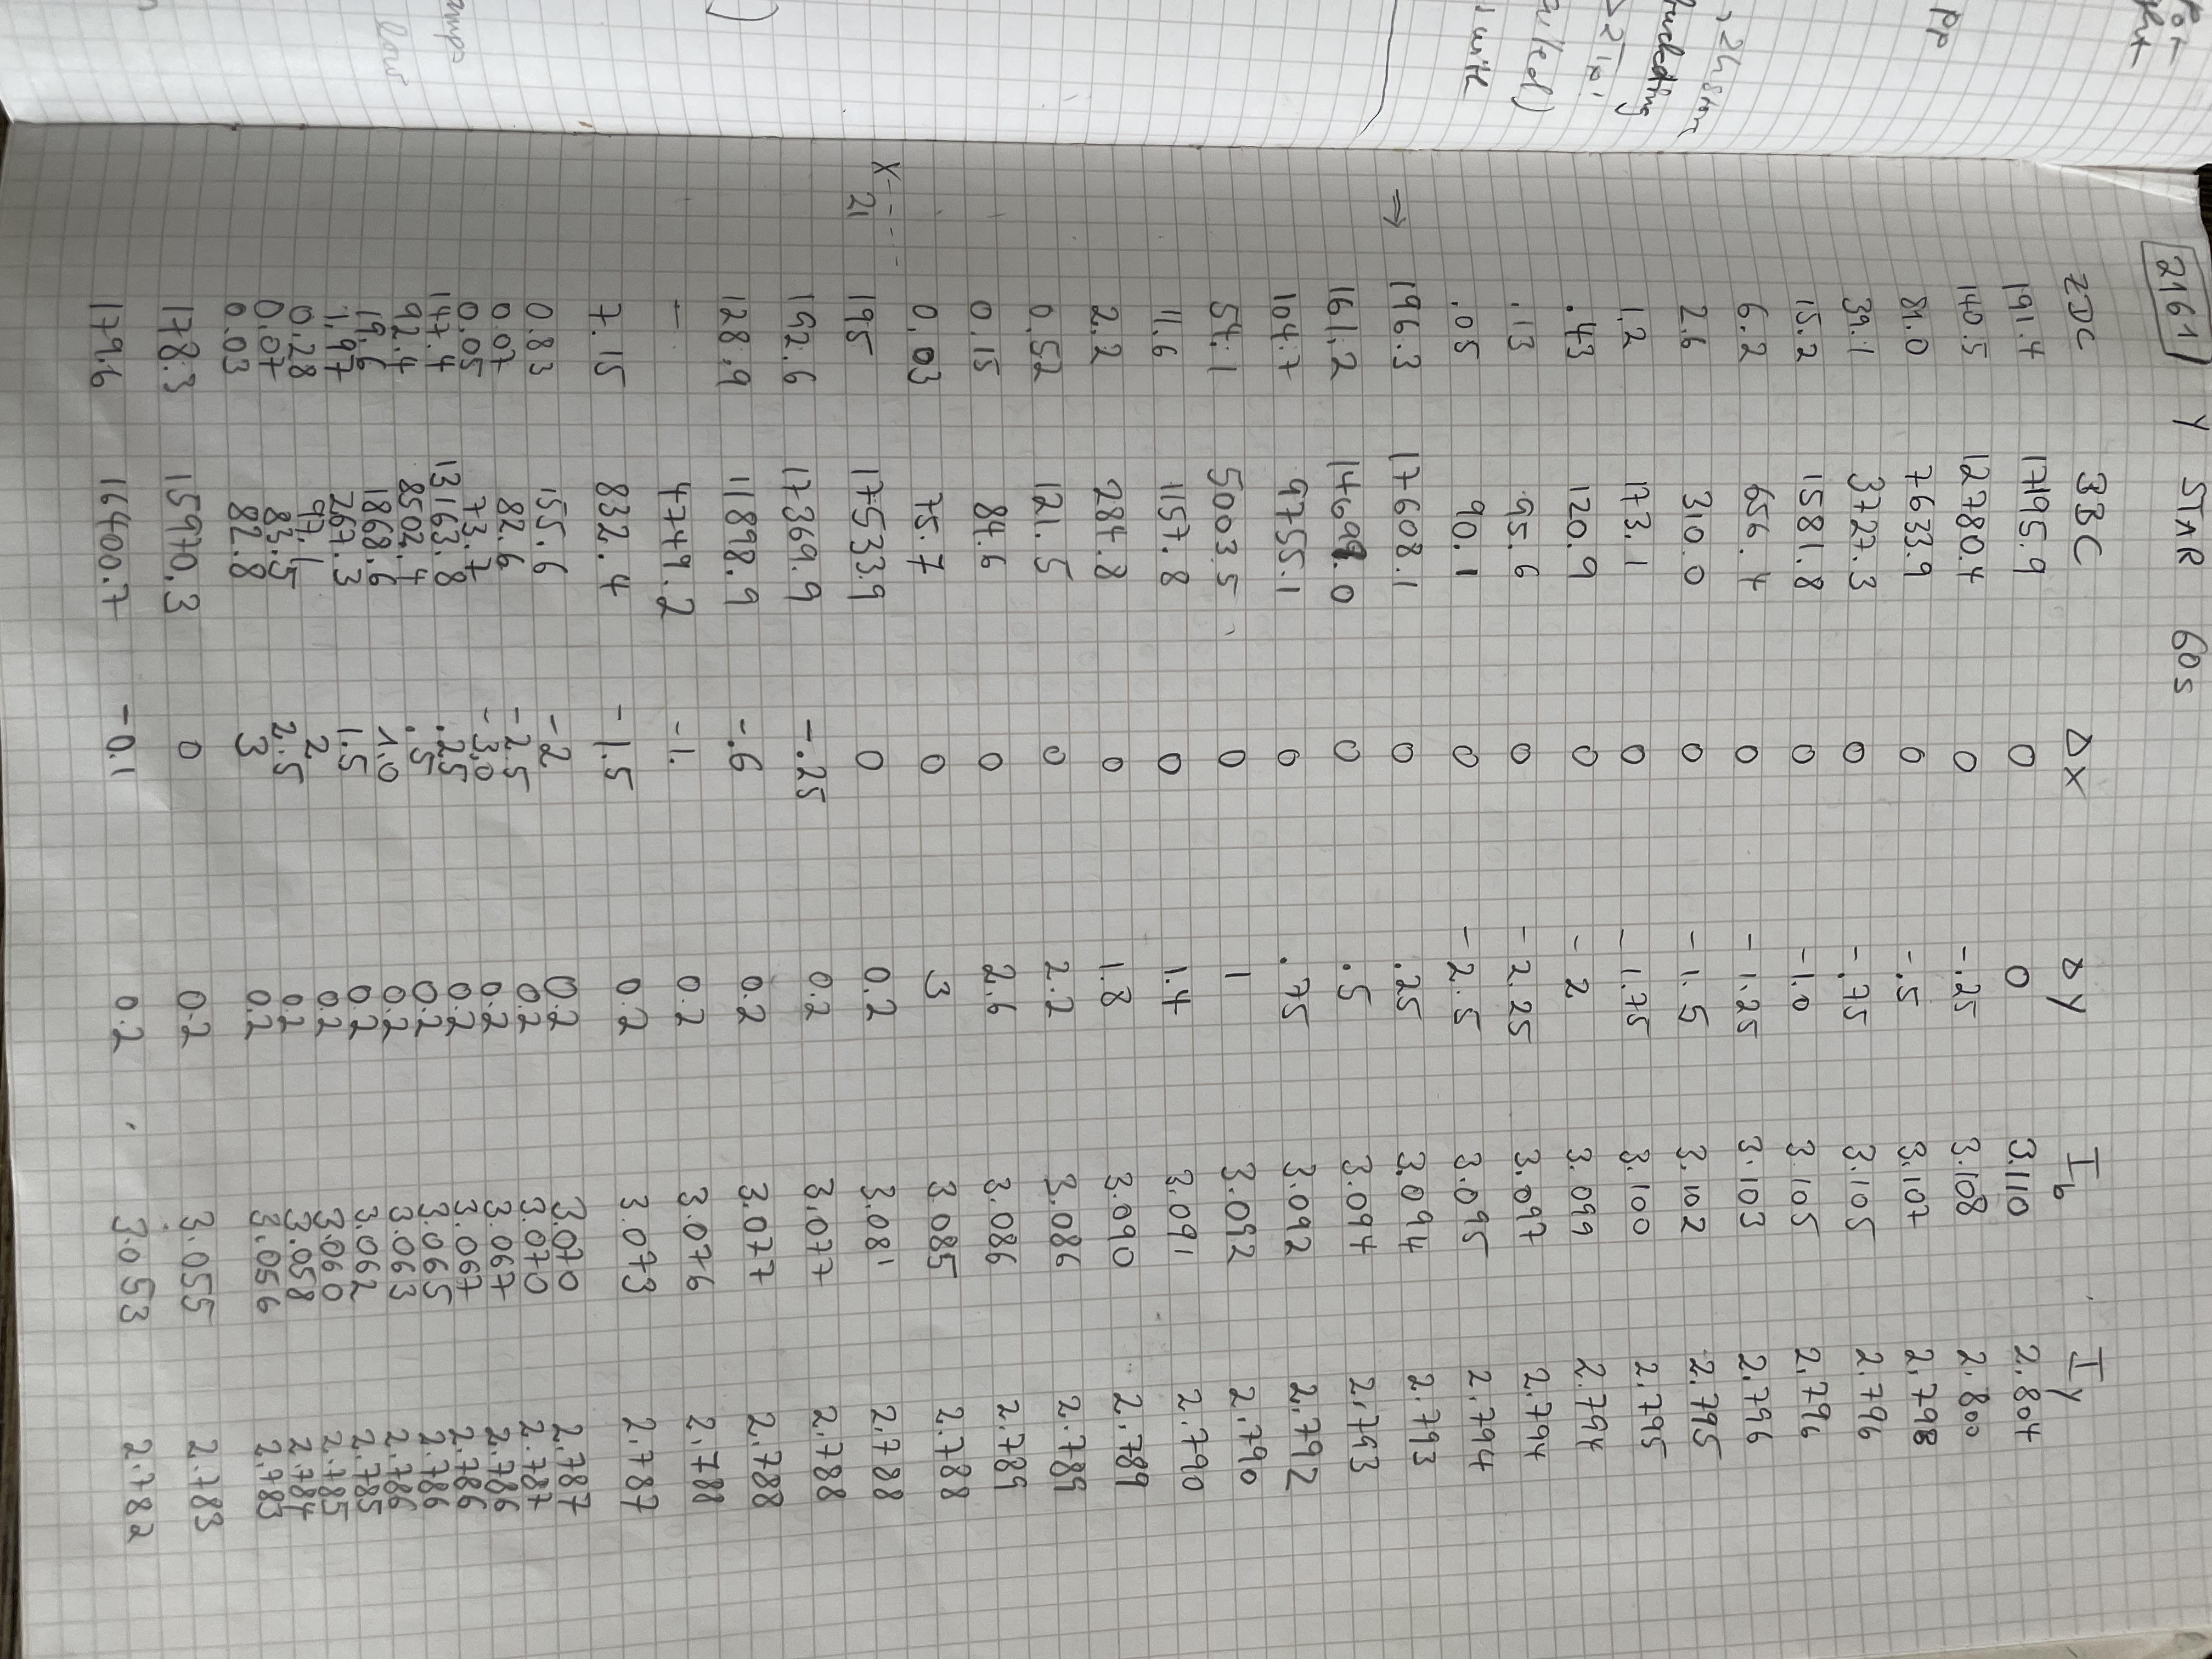 2161 Y STAR 60s
ZDC 3BC Δx Δy Ib Iy
191.4 17195.9 0 0 3.110 2.804
140.5 12780.4 0 -.25 3.108 2.800
81.0 7633.9 0 -.5 3.107 2.798
39.1 3727.3 0 -.75 3.105 2.796
15.2 1581.8 0 -1.0 3.105 2.796
6.2 656.4 0 -1.25 3.103 2.796
2.6 310.0 0 -1.5 3.102 2.795
1.2 173.1 0 -1.75 3.100 2.795
.43 120.9 0 -2 3.099 2.794
.13 95.6 0 -2.25 3.097 2.794
.05 90.1 0 -2.5 3.095 2.794
⇒ 196.3 17608.1 0 .25 3.094 2.793
161.2 14698.0 0 .5 3.094 2.793
104.7 9755.1 0 .75 3.092 2.792
54.1 5003.5 0 1 3.092 2.790
11.6 1157.8 0 1.4 3.091 2.790
2.2 284.8 0 1.8 3.090 2.789
0.52 121.5 0 2.2 3.086 2.789
0.15 84.6 0 2.6 3.086 2.789
0.03 75.7 0 3 3.085 2.788
x----
21 195 17533.9 0 0.2 3.081 2.788
192.6 17369.9 -.25 0.2 3.077 2.788
128.9 11898.9 -.6 0.2 3.077 2.788
- 4749.2 -1. 0.2 3.076 2.788
7.15 832.4 -1.5 0.2 3.073 2.787
0.83 155.6 -2 0.2 3.070 2.787
0.07 82.6 -2.5 0.2 3.070 2.787
0.05 73.7 -3.0 0.2 3.067 2.786
147.4 13163.8 .25 0.2 3.067 2.786
92.4 8502.4 .5 0.2 3.065 2.786
19.6 1868.6 1.0 0.2 3.063 2.786
1.97 267.3 1.5 0.2 3.062 2.785
0.28 97.1 2 0.2 3.060 2.785
0.07 83.5 2.5 0.2 3.058 2.784
0.03 82.8 3 0.2 3.056 2.783
178.3 15970.3 0 0.2 3.055 2.783
179.6 16400.7 -0.1 0.2 3.053 2.782
pp
with
low